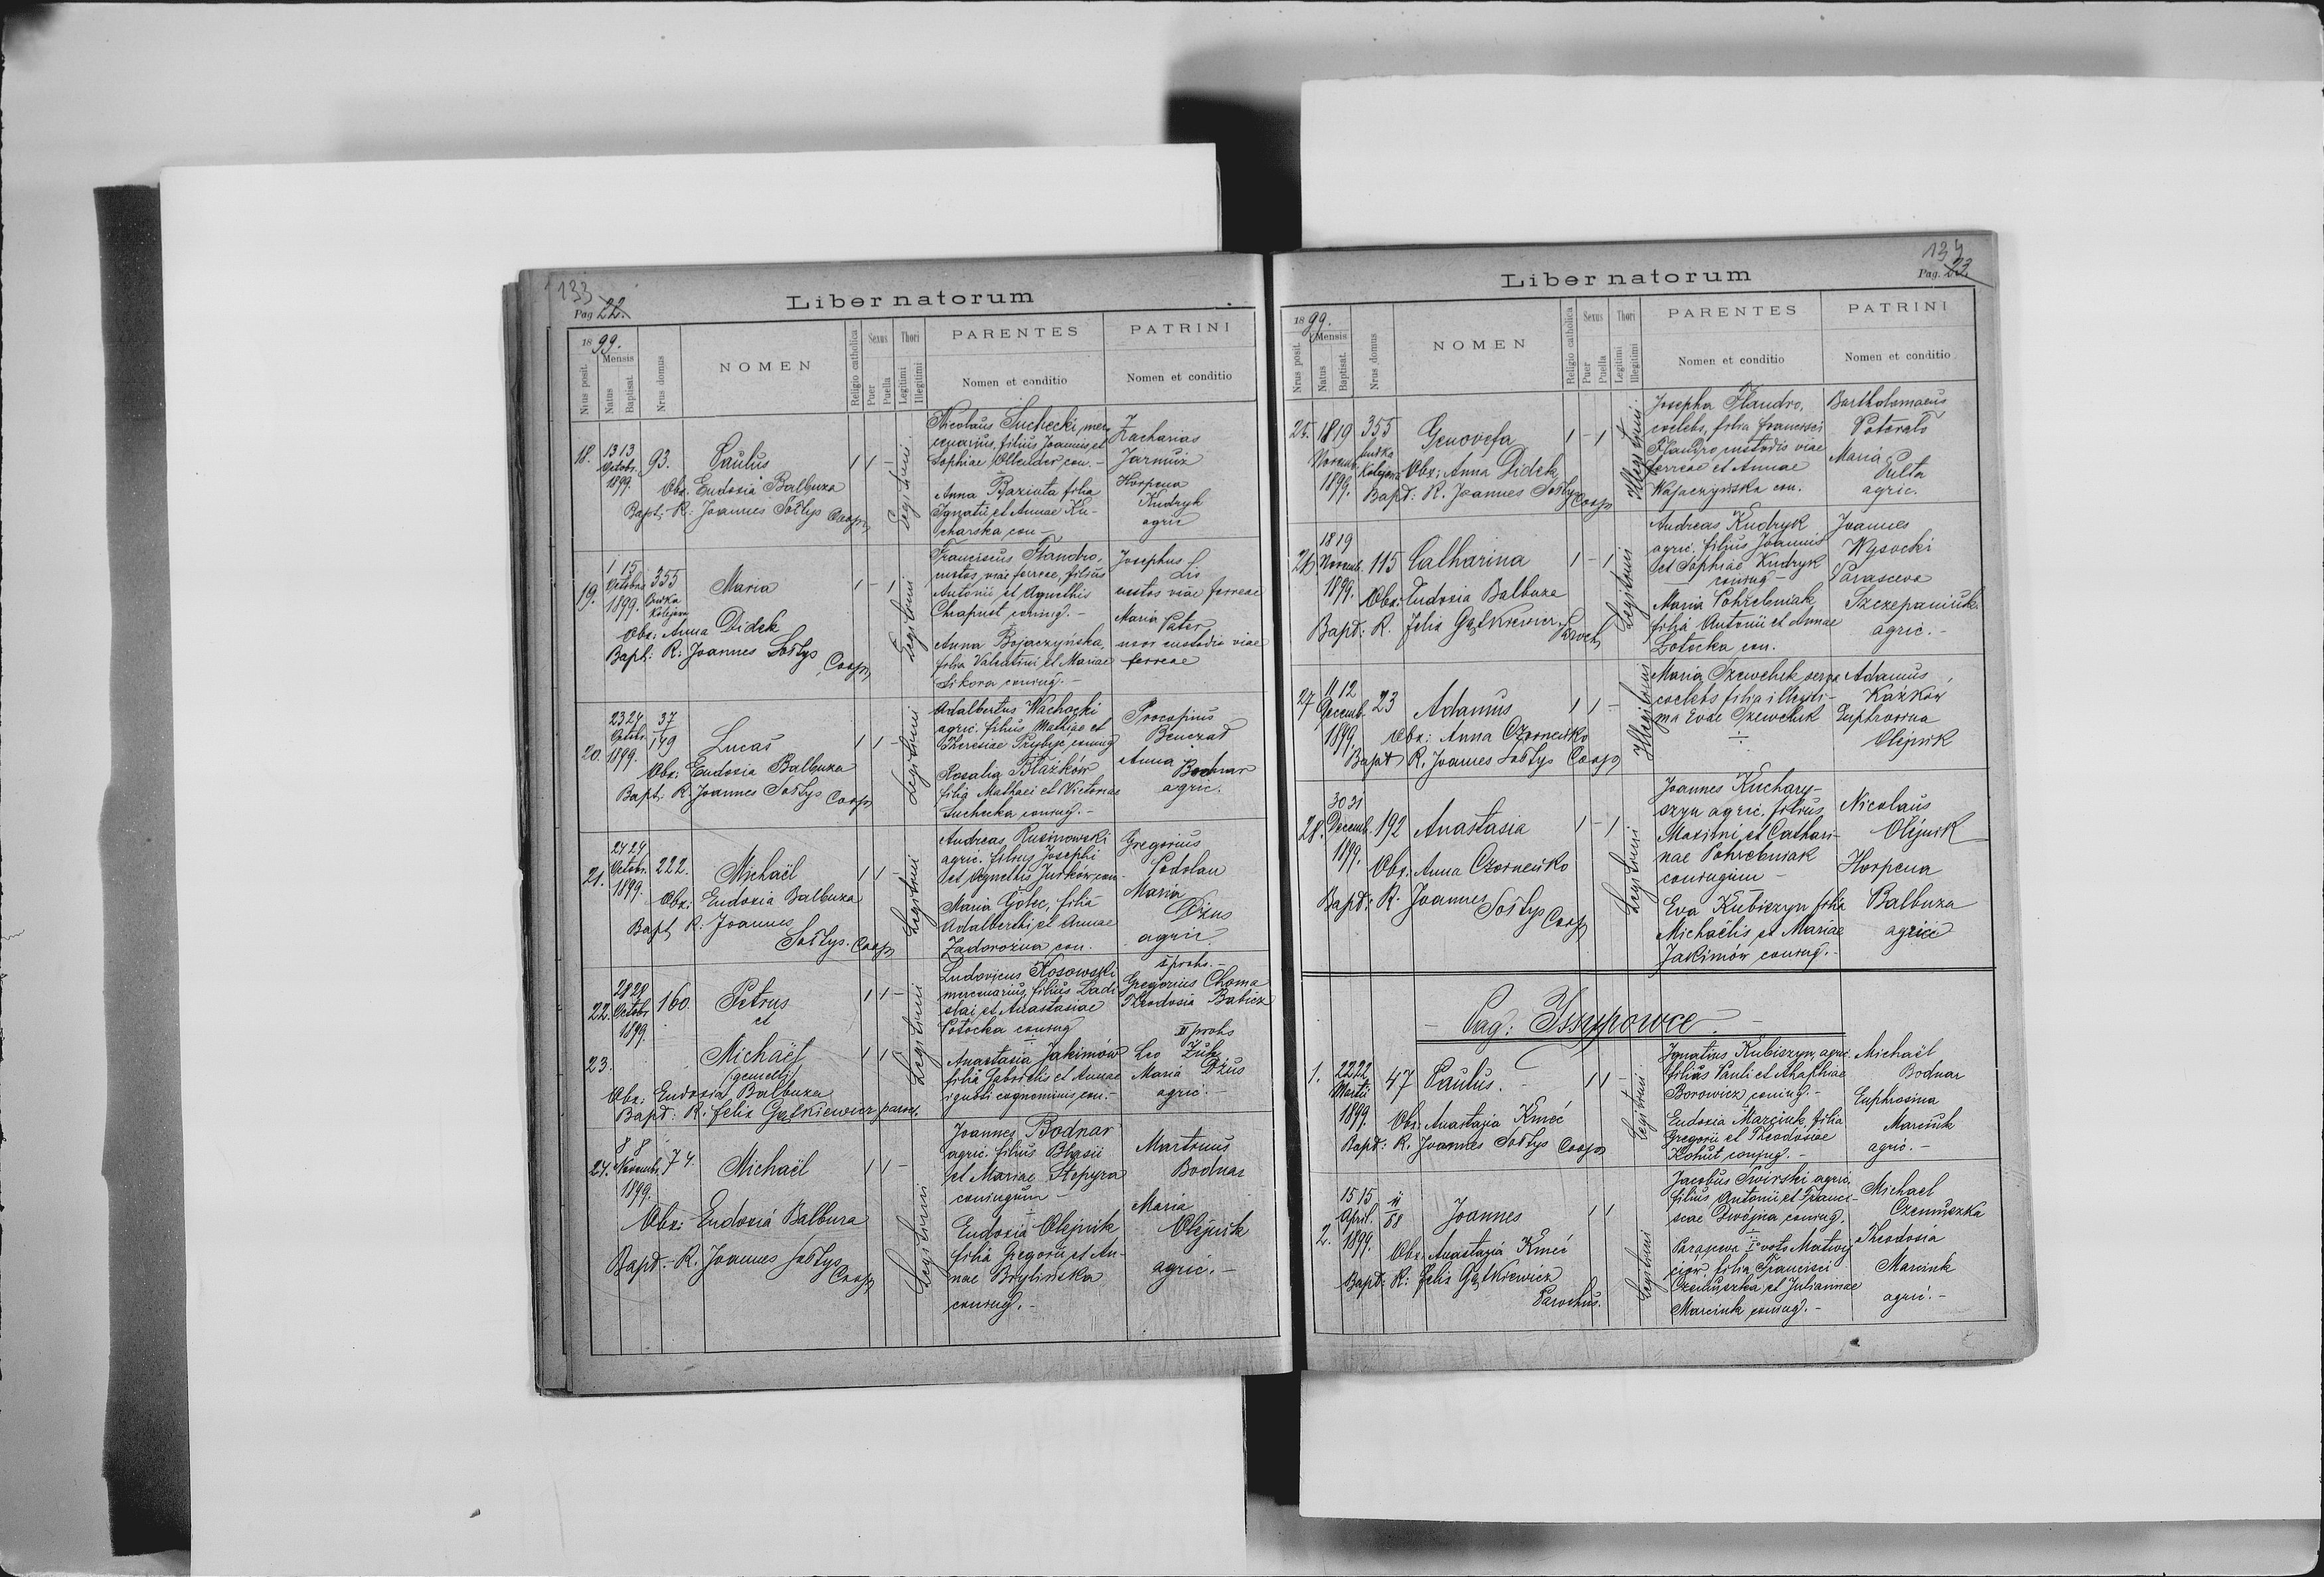 133
Pag 22.
Liber natorum
1899.
Mensis
Nrus posit.
Natus
Baptisat.
Nrus domus
NOMEN
Religio catholica
Sexus
Puer
Puella
Thori
Legitimi
Illegitimi
PARENTES
Nomen et conditio
PATRINI
Nomen et conditio
18.
13 13
Octobr.
1899
93.
Paulus
1 1 -
Obx. Eudoxia Balbuza
Bapt. R. Joannes Sołtys Coop.
Legitimi
Nicolaus Suchecki, mer
cenarius, filius Joannis et
Sophiae Ollender con. -
Anna Baziuta filia
Ignatii et Annae Ku-
charska con -
Zacharias
Jarmuż
Horpena
Kudryk
agric
19.
1 15
Octobr.
1899.
355
Budka
Kolejowa
Maria
1 - 1
Obx: Anna Didek
Bapt: R. Joannes Sołtys Coop.
Legitimi
Franciscus Flandro,
custos viae ferreae, filius
Antonii et Agnethis
Chrapust coniug. -
Anna Bojaczyńska,
filia Valentini et Mariae
Sikora coniug. -
Josephus
Lis
custos viae ferreae
Maria Pater
uxor custodis viae
ferreae
20.
23 24
Octobr.
1899.
37
149
Lucas
1 1 -
Obx: Eudoxia Balbuza
Bapt. R. Joannes Sołtys Coop.
Legitimi
Adalbertus Wachocki
agric. filius Mathiae et
Theresiae Przybyś coniug
Rosalia Błażków
filia Mathaei et Victoriae
Suchecka coniug. -
Procopius
Benczad
Anna
Bodnar
agric.
21.
24 29
Octobr.
1899.
222.
Michaël
1 1 -
Obx: Eudoxia Balbuza
Bapt R. Joannes
Sołtys. Coop.
Legitimi
Andreas Rusinowski
agric. filius Josephi
et Agnethis Jurków con.
Maria Golec, filia
Adalberthi et Annae
Zadorożna con.
Gregorius
Podolan
Maria
Dżus
agric.
22.
28 28
Octobr
1899.
160.
Petrus
et
1 1 -
23.
Michaël
(gemelli)
1 1
Obx: Eudoxia Balbuza
Bapt: R. Felix Gątkiewicz paroch.
Legitimi
Ludovicus Kosowski
mercenarius, filius Ladi
slai et Anastasiae
Potocka coniug
Anastasia Jakimów
filia Gabrielis et Annae
ignoti cognominis con. -
I prolis. -
Gregorius Choma
Theodosia Babicz
II prolis
Leo Zub
Maria Dżus
agric.
24.
8 8
Novembr.
1899.
74.
Michaël
1 1 -
Obx: Eudoxia Balbuza
Bapt. - R. Joannes Sołtys
Coop.
Legitimi
Joannes Bodnar
agric. filius Blasii
et Mariae Stepyra
coniugum -
Eudoxia Olejnik
filia Gregorii et An-
nae Brylińska
coniug. -
Martinus
Bodnar
Maria
Olejnik
agric. -
134
Pag. 23
Liber natorum
1899.
Mensis
Nrus posit.
Natus
Baptisat.
Nrus domus
NOMEN
Religio catholica
Sexus
Puer
Puella
Thori
Legitimi
Illegitimi
PARENTES
Nomen et conditio
PATRINI
Nomen et conditio
25.
18 19
Novemb.
1899.
355
Budka
Kolejowa
Genovefa
1 - 1
Obx: Anna Didek
Bapt: R. Joannes Sołtys Coop
Illegitimi
Josepha Flandro,
coelebs, filia Francisci
Flandro, custodis viae
ferreae et Annae
con.
Bartholomaeus
Maria
agric.
26
18 19
Novemb.
1899.
115
Catharina
1 - 1
Obx: Eudoxia Balbuza
Bapt: R. Felix Gątkiewicz
Paroch
Legitimi
Andreas Kudryk
agric. filius Joannis
et Sophiae Kudryk
coniug -
Maria Pohrebniak
filia Antonii et Annae
Łotocka con.
Joannes
Wysocki
Parasceva
Szczepaniuk
agric. -
27
11 12
Decemb.
1899.
23
Adamus
1 1 -
Obx: Anna Czorneńko
Bapt R. Joannes Sołtys Coop
Illegitimus
Maria Szewchuk serva
coelebs filia illegiti-
ma Evae Szewchuk
Adamus
Każków
Euphrosina
Olejnik
28.
30 31
Decemb.
1899.
192
Anastasia
1 - 1
Obx: Anna Czorneńko
Bapt: R. Joannes
Sołtys Coop
Legitimi
Joannes Kuchary-
szyn agric. filius
Maximi et Cathari-
nae Pohrebniak
coniugum -
Eva Kubiszyn filia
Michaëlis et Mariae
Jakimów coniug. -
Nicolaus
Olejnik
Horpena
Balbuza
agric
- Pag: Issypowce. -
1.
22 22
Martii
1899.
47
Paulus. -
1 1 -
Obx: Anastazia Kmeć
Bapt: R. Joannes Sołtys Coop
Legitimi
Ignatius Kubiszyn, agric.
filius Pauli et Ahaphiae
Borowicz coniug. -
Eudoxia Marciuk, filia
Gregorii et Theodosiae
Kohut coniug. -
Michaël
Bodnar
Euphrosina
Marciuk
agric. -
2.
15 15
April.
1899.
68
Joannes
1 1
Obx: Anastazia Kmeć
Bapt: R: Felix Gątkiewicz
Parochus.
Legitimi
Jacobus Świrski agric.
filius Antonii et Franci-
scae Dwojna coniug.
Parasceva I° voto Matwij
ciów filia Francisci
Czemuszka et Juliannae
Marciuk coniug. -
Michael
Czemuszka
Theodosia
Marciuk
agric. -